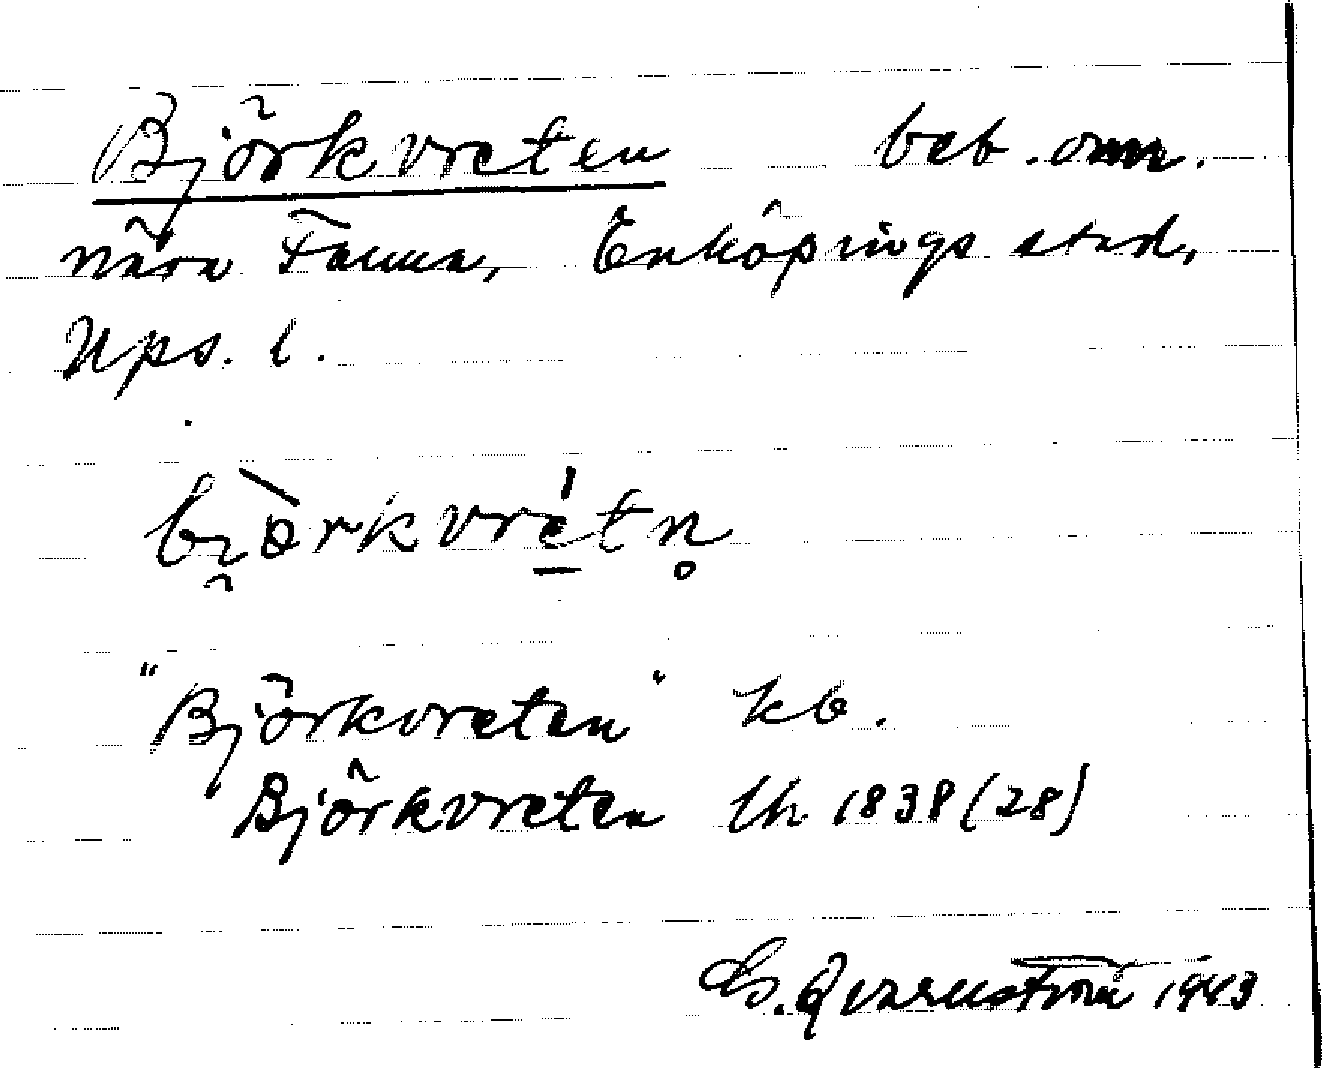 Björkvreten beb. omr.
nära Fanna, Enköpings stad,
Ups. l.
bi̯òrkvré̱tn̥
"Björkvreten" kb.
Björkvreten lh 1838 (28)
G. Qvarnström 1943